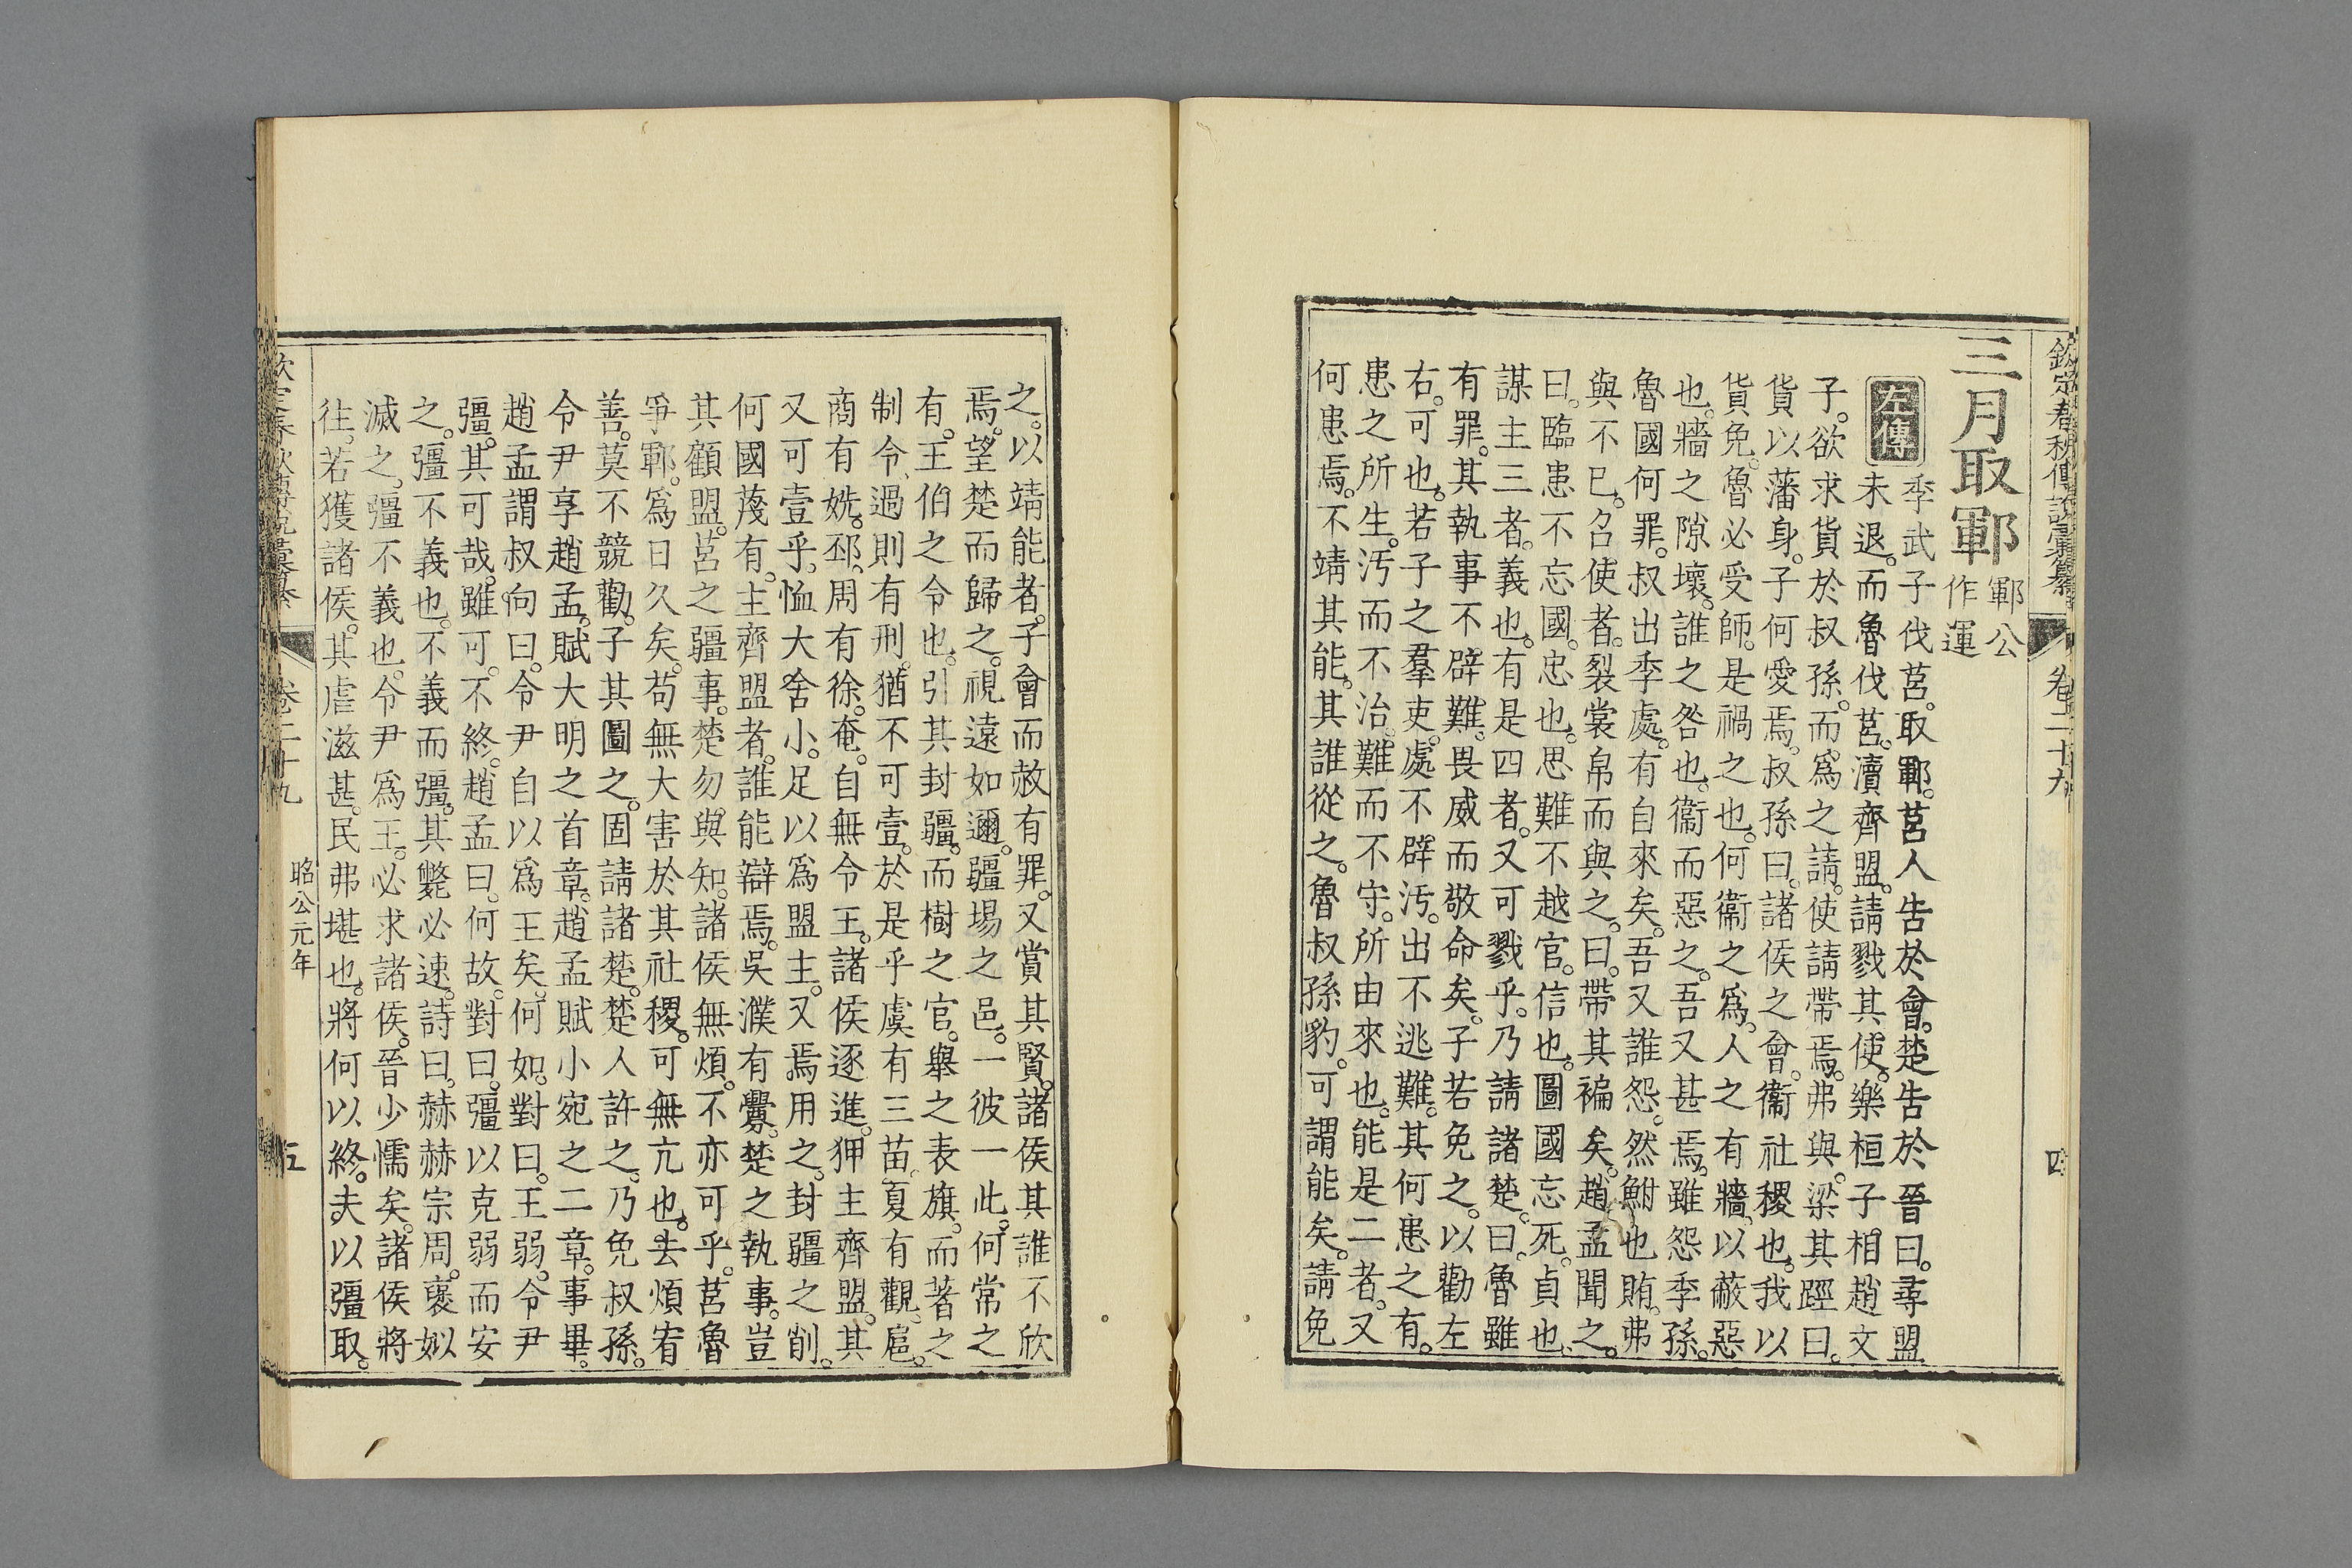 欽定春秋傳說彙纂 卷二十九 四
三月取鄆鄆公作運
左傳
季武子伐莒。取鄆。莒人告於會。楚告於晉曰。尋盟
未退。而魯伐莒。瀆齊盟。請戮其使。樂桓子相趙文
子。欲求貨於叔孫。而為之請。使請帶焉。弗與。梁其踁曰。
貨以藩身。子何愛焉。叔孫曰。諸侯之會。衞社稷也。我以
貨免。魯必受師。是禍之也。何衞之爲。人之有牆。以蔽惡
也。牆之隙壞。誰之咎也。衞而惡之。吾又甚焉。雖怨季孫。
魯國何罪。叔出季處。有自來矣。吾又誰怨。然鮒也賄。弗
與不已。召使者。裂裳帛而與之。曰。帶其褊矣。趙孟聞之。
曰。臨患不忘國。忠也。思難不越官。信也。圖國忘死。貞也。
謀主三者。義也。有是四者。又可戮乎。乃請諸楚。曰。魯雖
有罪。其執事不辟難。畏威而敬命矣。子若免之。以勸左
右。可也。若子之羣吏。處不辟汚。出不逃難。其何患之有。
患之所生。汚而不治。難而不守。所由來也。能是二者。又
何患焉。不靖其能。其誰從之。魯叔孫豹。可謂能矣。請免
之。以靖能者。子會而赦有罪。又賞其賢。諸侯其誰不欣
焉。望楚而歸之。視遠如邇。疆埸之邑。一彼一此。何常之
有。王伯之令也。引其封疆。而樹之官。舉之表旗。而著之
制令。過則有刑。猶不可壹。於是乎虞有三苗。夏有觀。扈。
商有姺。邳。周有徐。奄。自無令王。諸侯逐進。狎主齊盟。其
又可壹乎。恤大舍小。足以爲盟主。又焉用之。封疆之削。
何國蔑有。主齊盟者。誰能辯焉。吳濮有釁。楚之執事。豈
其顧盟。莒之疆事。楚勿與知。諸侯無煩。不亦可乎。莒魯
爭鄆。爲日久矣。苟無大害於其社稷。可無亢也。去煩宥
善。莫不競勸。子其圖之。固請諸楚。楚人許之。乃免叔孫。
令尹享趙孟。賦大明之首章。趙孟賦小宛之二章。事畢。
趙孟謂叔向曰。令尹自以爲王矣。何如。對曰。王弱。令尹
彊。其可哉。雖可。不終。趙孟曰。何故。對曰。彊以克弱而安
之。彊不義也。不義而彊。其斃必速。詩曰。赫赫宗周。褒姒
滅之。彊不義也。令尹爲王。必求諸侯。晉少懦矣。諸侯將
往。若獲諸侯。其虐滋甚。民弗堪也。將何以終。夫以彊取。
昭公元年
欽定春秋傳說彙纂 卷二十九 五